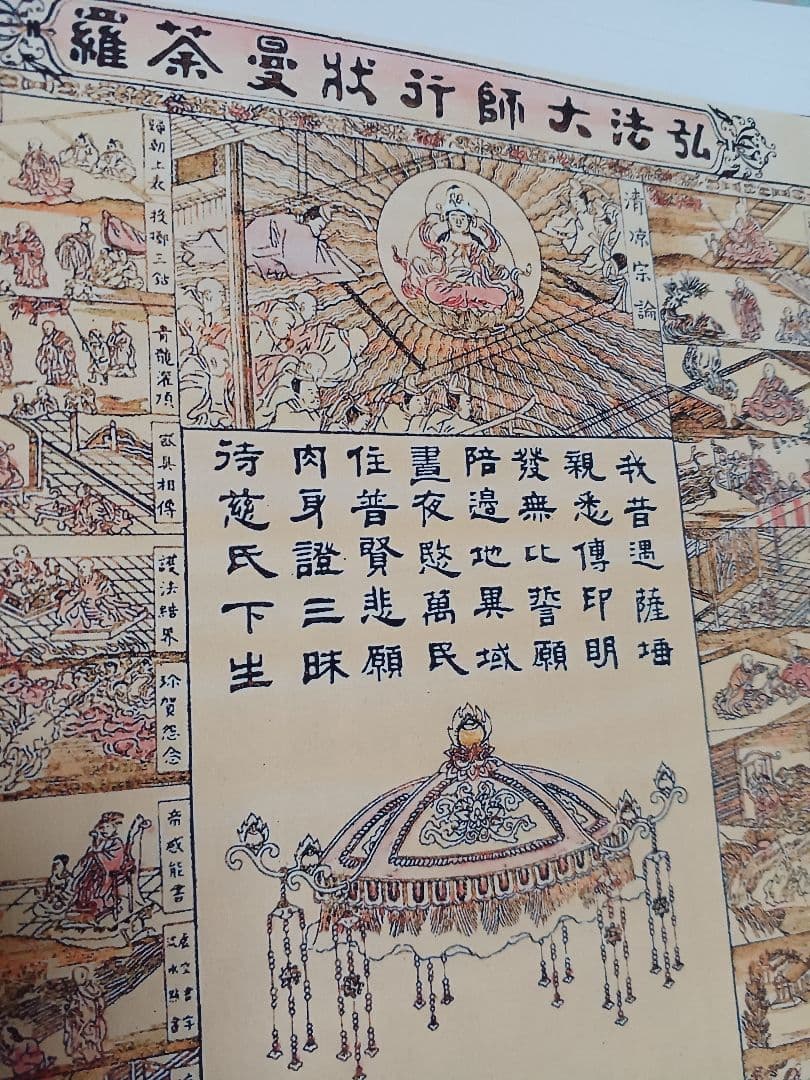 弘法大師行状曼荼羅
清凉宗論
我昔遇薩埵
親悉傳印明
發無比誓願
陪邊地異域
晝夜愍萬民
住普賢悲願
肉身證三昧
待慈氏下生
歸朝上表
投擲三鈷
青龍灌頂
道具相傳
護法結界
珍賀怨念
帝感能書
虚空書字
流水點書